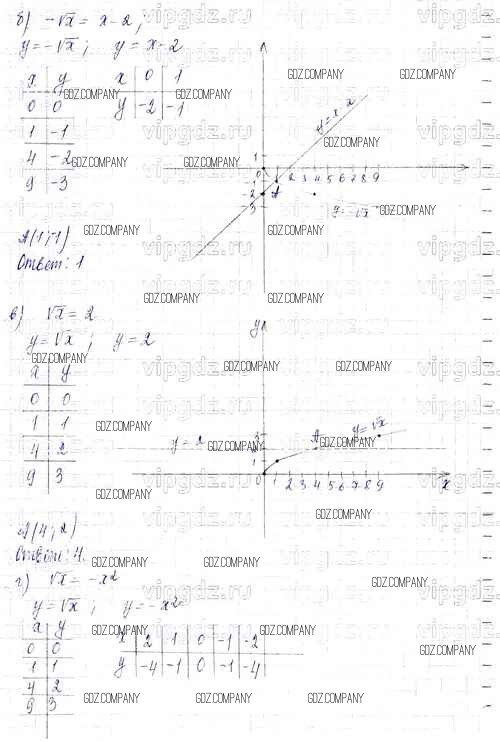 б) -√x = x-2;
y = -√x; y = x-2
x y
0 0
1 -1
4 -2
9 -3
x 0 1
y -2 -1
y = x-2
1
0 1 2 3 4 5 6 7 8 9
-1
-2 A
-3
y = -√x
A(1;-1)
Ответ: 1
в) √x = 2
y = √x; y = 2
x y
0 0
1 1
4 2
9 3
y
3
y = 2
A
y = √x
1
0 1 2 3 4 5 6 7 8 9 x
A(4; 2)
Ответ: 4.
г) √x = -x²
y = √x; y = -x²
x y
0 0
1 1
4 2
9 3
x 2 1 0 -1 -2
y -4 -1 0 -1 -4
GDZ.COMPANY
vipgdz.ru